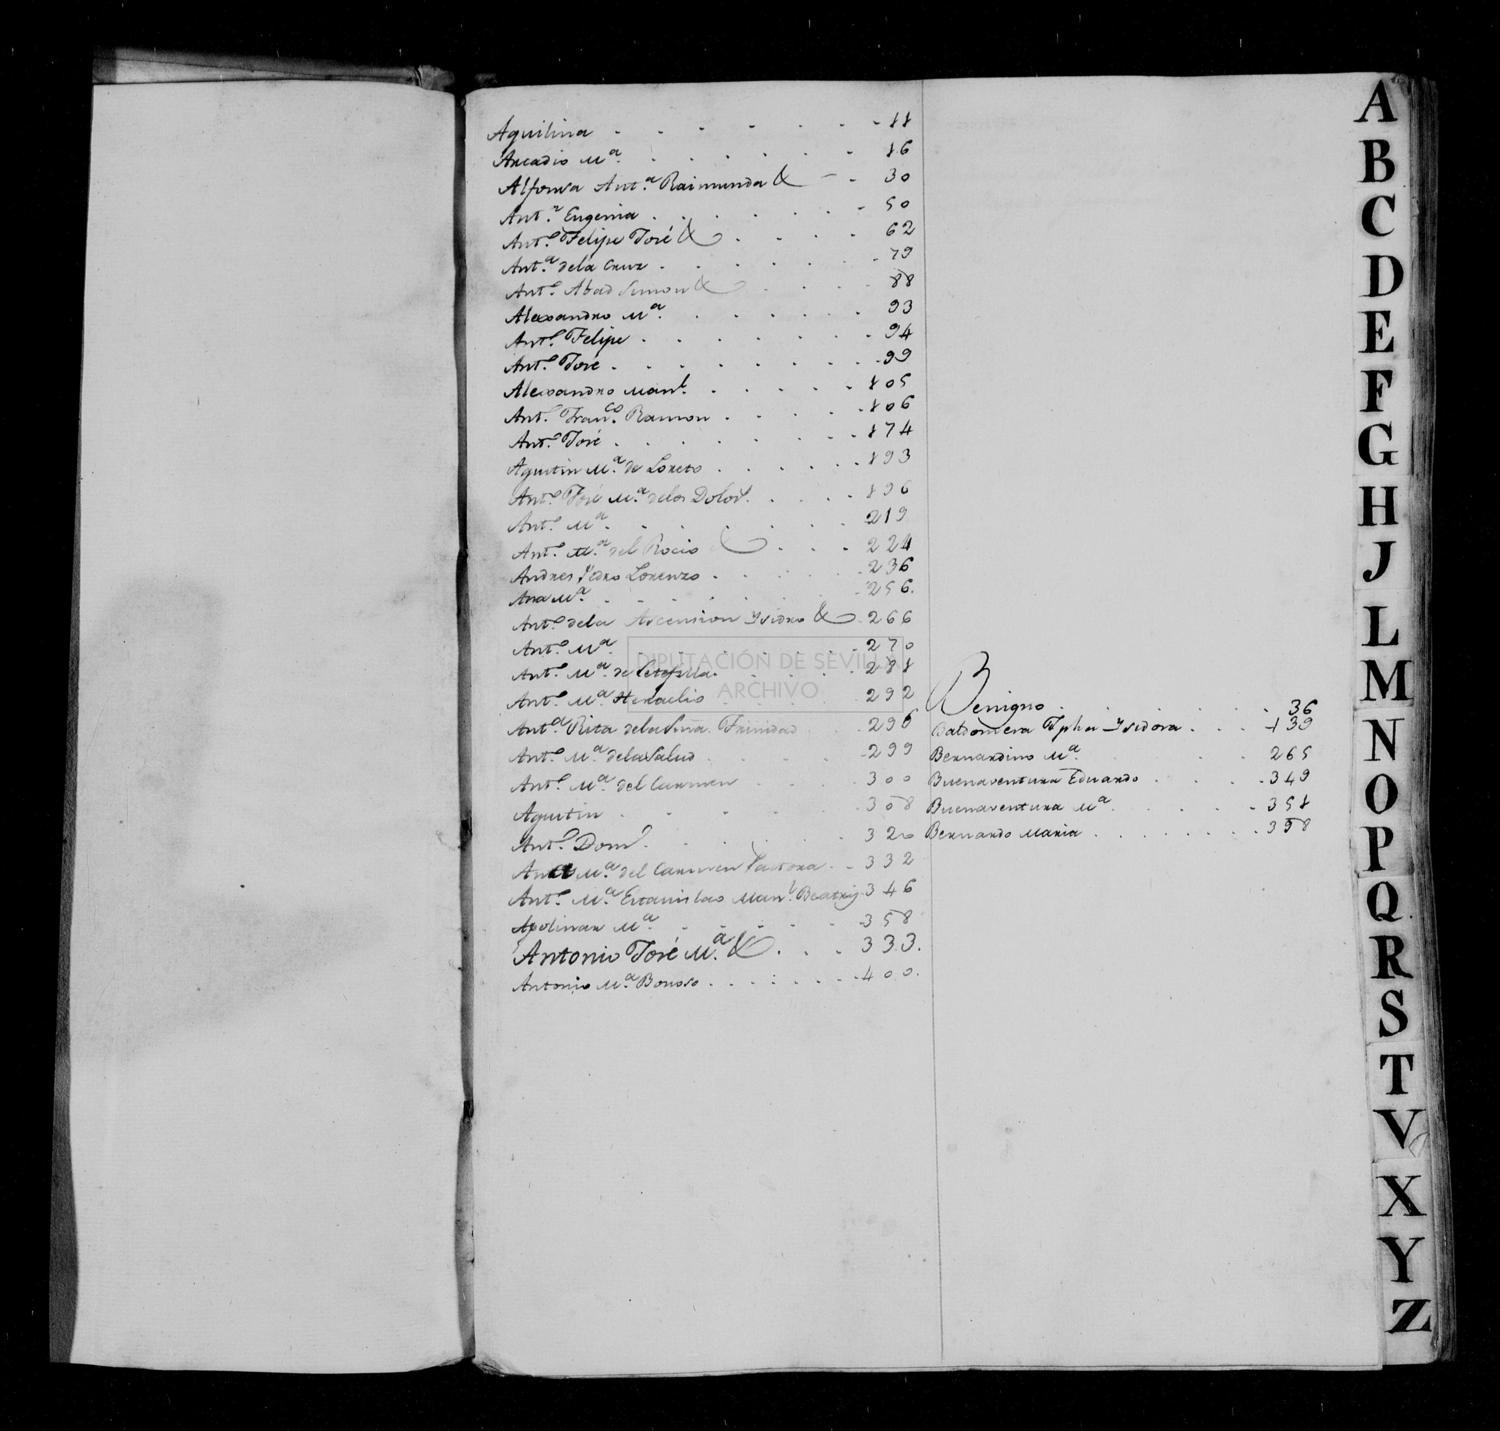 Aquilina - - - - - - 11
Arcadio Mª. - - - - - 16
Alfonsa Antª. Raimunda & - - 30
Antª. Eugenia - - - - - 50
Antº. Felipe José & - - - 62
Antª. dela Cruz - - - - - 79
Antº. Abad Simon & - - - 88
Alexandro Mª. - - - - - 93
Antº. Felipe - - - - - 94
Antº. José - - - - - 99
Alexandro Manl. - - - - 105
Antº. Franco. Ramon - - - - 106
Antº. José - - - - - 174
Agustin Mª. de Loreto - - - - 193
Antº. José Mª. delos Dolors. - - - 196
Antº. Mª. - - - - - 219
Antº. Mª. del Rocio & - - - 224
Andres Pedro Lorenzo - - - - 236
Ana Mª. - - - - - 256.
Antº. dela Ascension Ysidro & - 266
Antº. Mª. - - - - - 270
Antº. Mª. de - - - 281
Antº. Mª. Heraclio - - - 292
Antª. Rita dela Sma. Trinidad - - 296
Antº. Mª. dela Salud - - - - 299
Antº. Mª. del Carmen - - - - 300
Agustin - - - - - 308
Antº. Domº. - - - - 320
Ana Mª. del Carmen Pastora - - 332
Antº. Mª. Estanislao Manl. Beatriz - 346
Apolinar Mª. - - - - - 358
Antonio José Mª. & - - - 333.
Antonio Mª. Bonoso - - - - 400.
Benigno - - - - - 36
Baldomera Jpha Ysidora - - - 139
Bernardino Mª. - - - - 265
Buenaventura Eduardo - - - 349
Buenaventura Mª. - - - - 351
Bernardo Maria - - - - 358
A
B
C
D
E
F
G
H
J
L
M
N
O
P
Q
R
S
T
V
X
Y
Z
DIPUTACIÓN DE SEVILLA
ARCHIVO